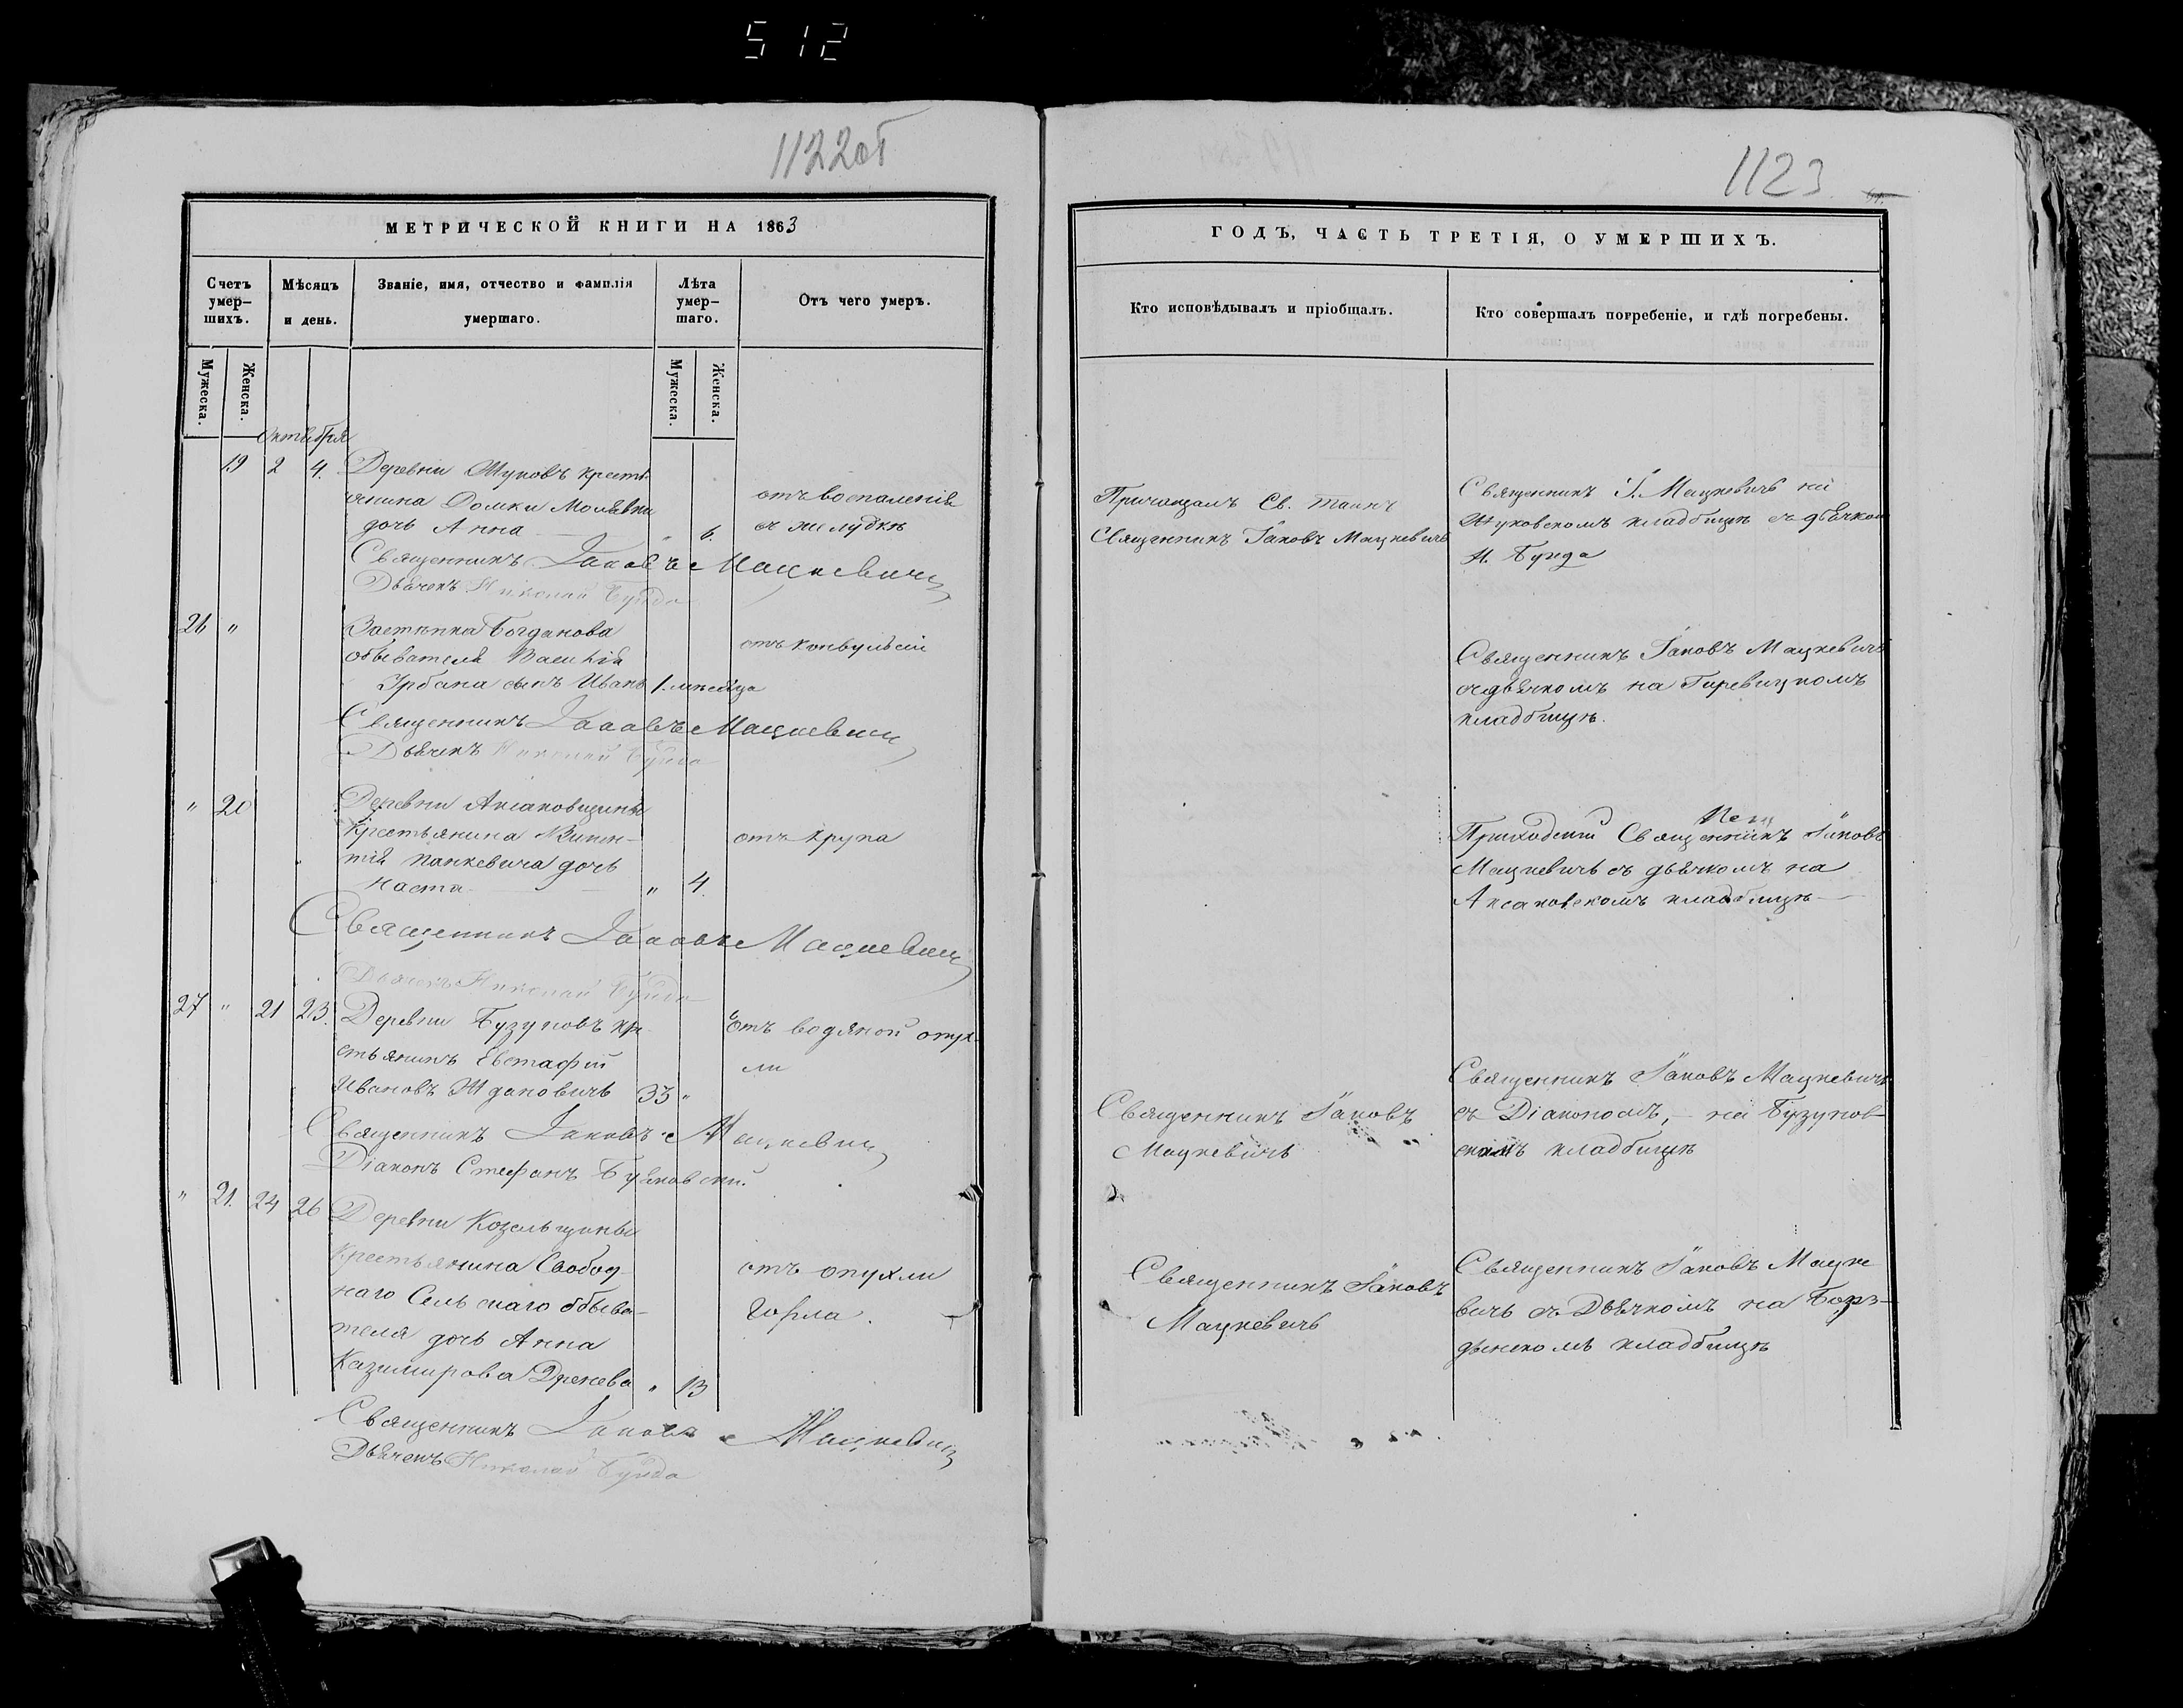 512
1122об
МЕТРИЧЕСКОЙ КНИГИ НА 1863
Счетъ умер-шихъ.
Мѣсяцъ и день.
Званіе, имя, отчество и фамилія умершаго.
Лѣта умер-шаго.
Отъ чего умеръ.
Мужеска.
Женска.
Мужеска.
Женска.
Октября
19 2 4. Деревни Жуковъ кресть-
янина Домки
дочь Анна " 6.
отъ воспаленія
въ желудкѣ
Священникъ Іаковъ Мацкевичъ
Дьячекъ Николай Бунда
26 " Застѣнка Богданова
обывателя
Урбана сынъ Иванъ 1. мѣсяца
отъ конвульсій
Священникъ Іаковъ Мацкевичъ
Дьячекъ Николай Бунда
" 20 Деревни Аксаковщины
крестьянина Викен-
тія Панкевича дочь
Наста " 4.
отъ крупа
Священникъ Іаковъ Мацкевичъ
Дьячекъ Николай Бунда
27 " 21 23. Деревни Бузуновъ кре-
стьянинъ Евстафій
Ивановъ Ждановичъ 33 "
отъ водяной опух-
ли
Священникъ Іаковъ Мацкевичъ
Діаконъ Стефанъ
" 21. 24 26 Деревни Козельщины
крестьянина Свобод-
наго Сельскаго обыва-
теля дочь Анна
Казимирова " 13
отъ опухли
горла.
Священникъ Іаковъ Мацкевичъ
Дьячекъ Николай Бунда
1123
ГОДЪ, ЧАСТЬ ТРЕТІЯ, О УМЕРШИХЪ.
Кто исповѣдывалъ и пріобщалъ.
Кто совершалъ погребеніе, и гдѣ погребены.
Причащалъ Св. таинъ
Священникъ Іаковъ Мацкевичъ
Священникъ І. Мацкевичъ на
Жуковскомъ кладбищѣ съ дьячком
Н. Бунда
Священникъ Іаковъ Мацкевичъ
съ дьячкомъ на Гиревицкомъ
кладбищѣ.
Приходскій Священникъ Іаковъ
Мацкевичъ съ дьячкомъ на
Аксаковскомъ кладбищѣ
Священникъ Іаковъ
Мацкевичъ
Священникъ Іаковъ Мацкевичъ
съ Діакономъ, на Бузунов-
скомъ кладбищѣ
Священникъ Іаковъ
Мацкевичъ
Священникъ Іаковъ Мацке
вичъ съ Дьячкомъ на
кладбищѣ